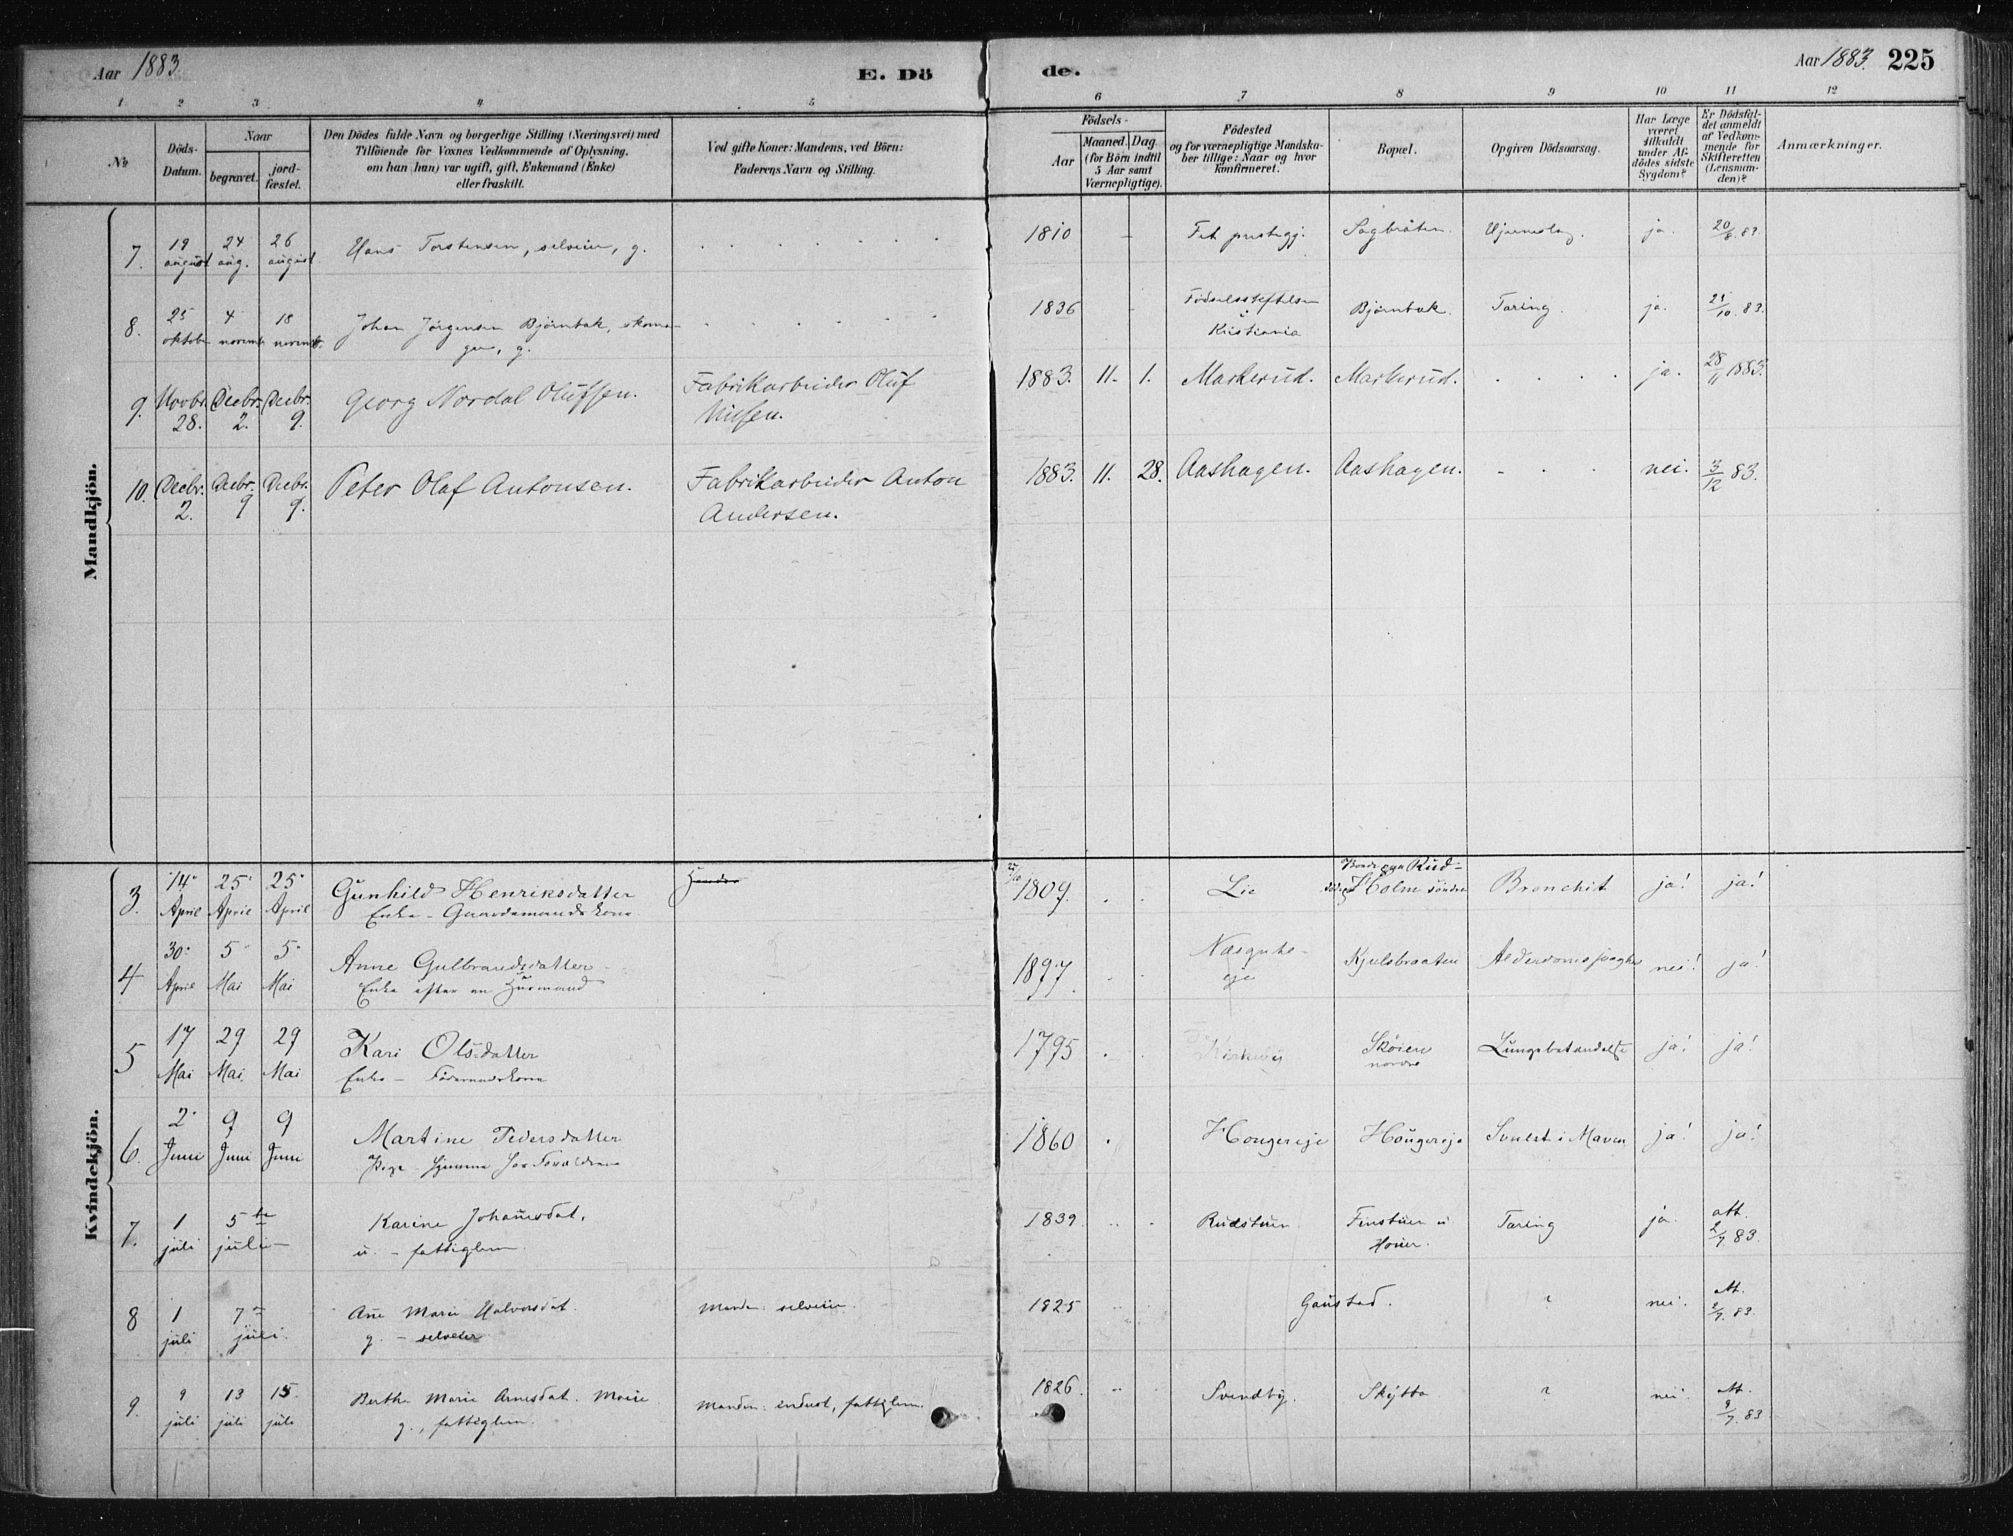 Aar 1883
E. Dö
de.
Aar 1883. 225
1 2 3 4 5 6 7 8 9 10 11 12
No
Döds-
Datum.
Naar
begravet.
jord-
fæstet.
Den Dödes fulde Navn og borgerlige Stilling (Næringsvei) med
Tilföiende for Voxnes Vedkommende af Oplysning,
om han (hun) var ugift, gift, Enkemand (Enke)
eller fraskilt.
Ved gifte Koner: Mandens, ved Börn:
Faderens Navn og Stilling.
Födsels-
Aar
Maaned. Dag.
(for Börn indtil
5 Aar samt
Værnepligtige).
Födested
og for værnepligtige Mandska-
ber tillige: Naar og hvor
konfirmeret.
Bopæl.
Opgiven Dödsaarsag.
Har Læge
været
tilkaldt
under Af-
dödes sidste
Sygdom?
Er Dödsfal-
det anmeldt
af Vedkom-
mende for
Skifteretten
(Lensman-
den)?
Anmærkninger.
Mandkjön.
7. 19 august 24 aug. 26 august Hans Torstensen, selveier, g. 1810 Fet prestegj. Sagbråten ja. 20/8 83.
8. 25 oktober 4 novemb. 18 novemb. Johan Jørgensen Bjørnbak, skoma-
ger, g. 1836 Fødselsstiftelsen i Kristiania Bjørnbak. Tæring. ja. 25/10. 83.
9. Novbr. 28. Decbr. 2. Decbr. 9. Georg Nordal Oluffsen. Fabrikarbeider Oluf
Nilsen. 1883. 11. 1. Markerud. Markerud. ja. 28/11 1883.
10. Decbr. 2. Decbr. 9 Decbr. 9. Peter Olaf Antonsen. Fabrikarbeider Anton
Andersen. 1883. 11. 28. Aashagen. Aashagen. nei. 3/12 83.
Kvindekjön.
3. 14 April 25 April 25 April Gunhild Henriksdatter
Enke – Gaardmandskone 1809. Lie Holm söndre Bronchit ja! ja!
4 30 April 5 Mai 5 Mai Anne Gulbrandsdatter
Enke efter en Husmand 1897. Kjelsbraaten nei! ja!
5 17 Mai 29 Mai 29 Mai Kari Olsdatter
Enke – 1795 Kirkeby Skøien
nordre ja! ja!
6. 2 Juni 9 Juni 9 Juni Martine Pedersdatter
Pige – hjemme hos Forældrene 1860 Hougereje Hougereje Svulst i Maven ja! ja!
7. 1 juli 5te juli Karine Johannesdat.
u. – fattiglem. 1839 Rudstuen. Tæring ja. att. 2/7. 83.
8 1 juli 7de juli. Ane Marie Halvorsdat.
g. – selveier Manden: selveier. 1825 Gaustad. ? nei. att. 2/7. 83.
9. 9 juli 13 juli 15 juli Berthe Marie Arnesdat. Moeie
g., fattiglem. Manden: inderst, fattiglem. 1826. Svendby. Skytta ? nei. att. 9/7. 83